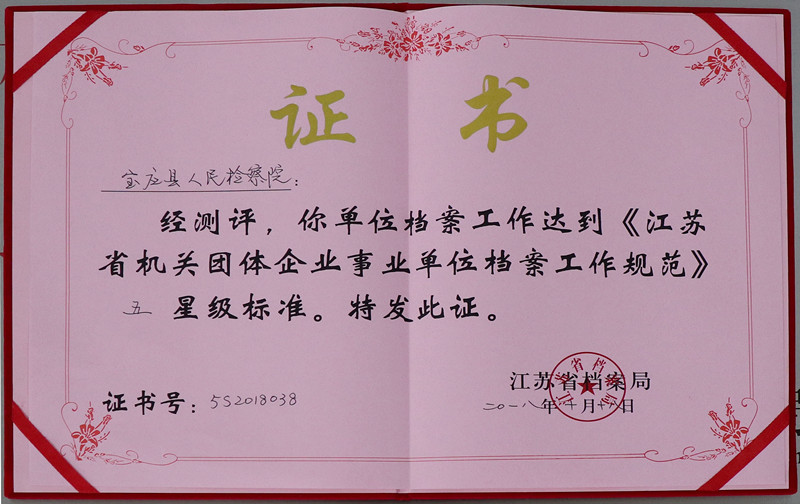 证书
宝应县人民检察院：
经测评，你单位档案工作达到《江苏
省机关团体企业事业单位档案工作规范》
五星级标准。特发此证。
江苏省档案局
证书号：5S2018038
二〇一八年 十月十八日